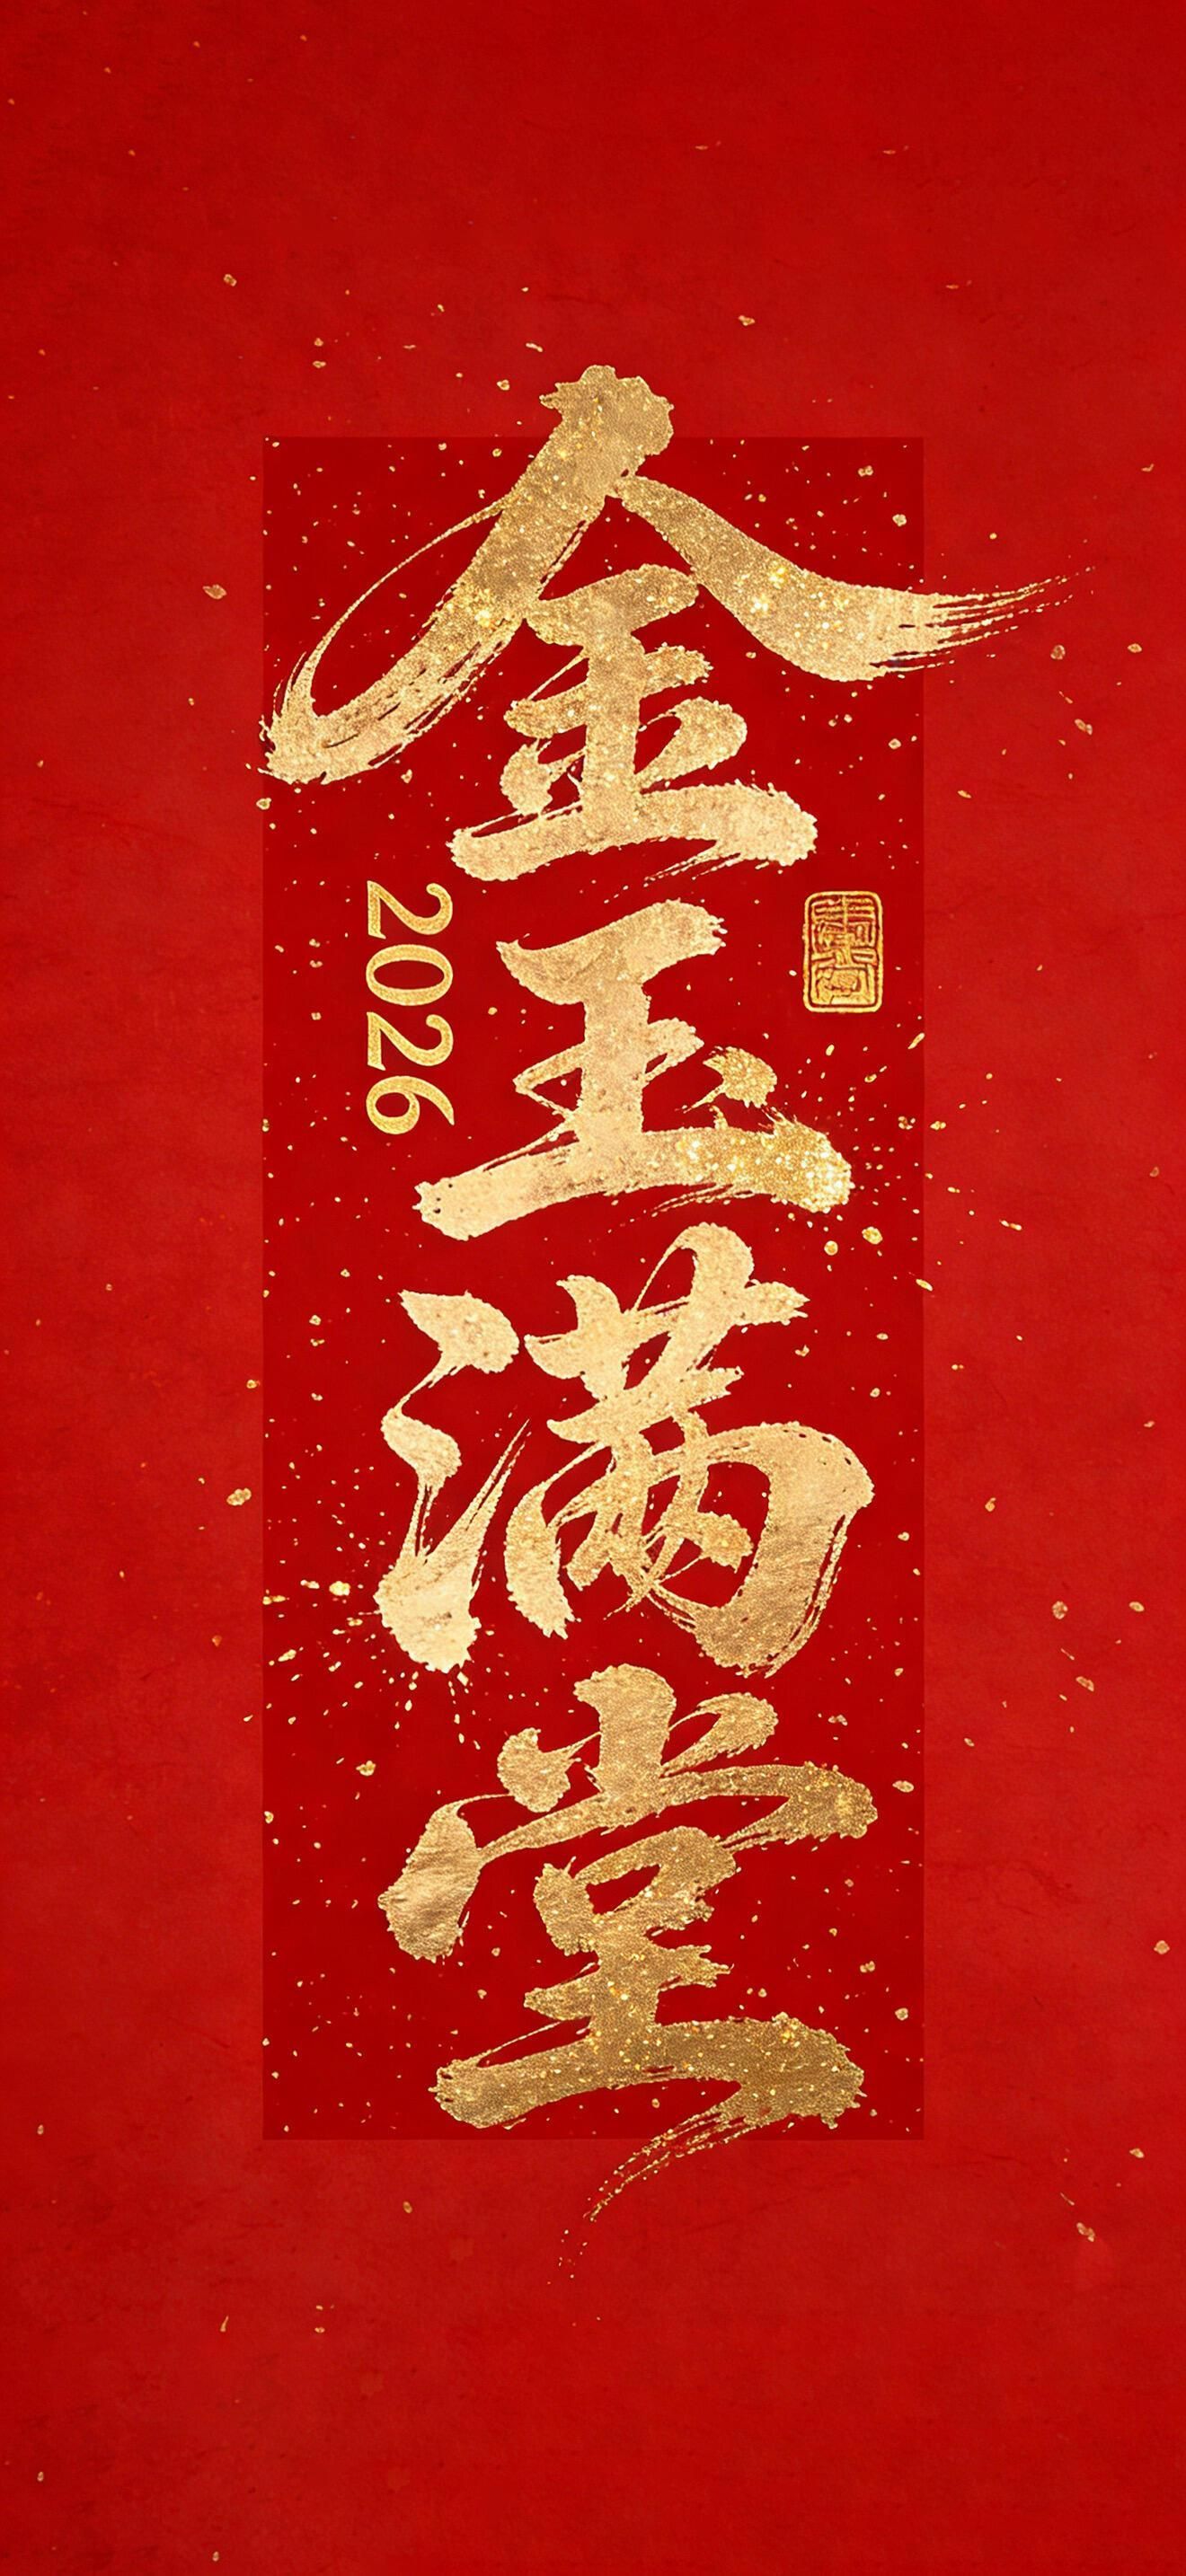 金玉满堂
2026